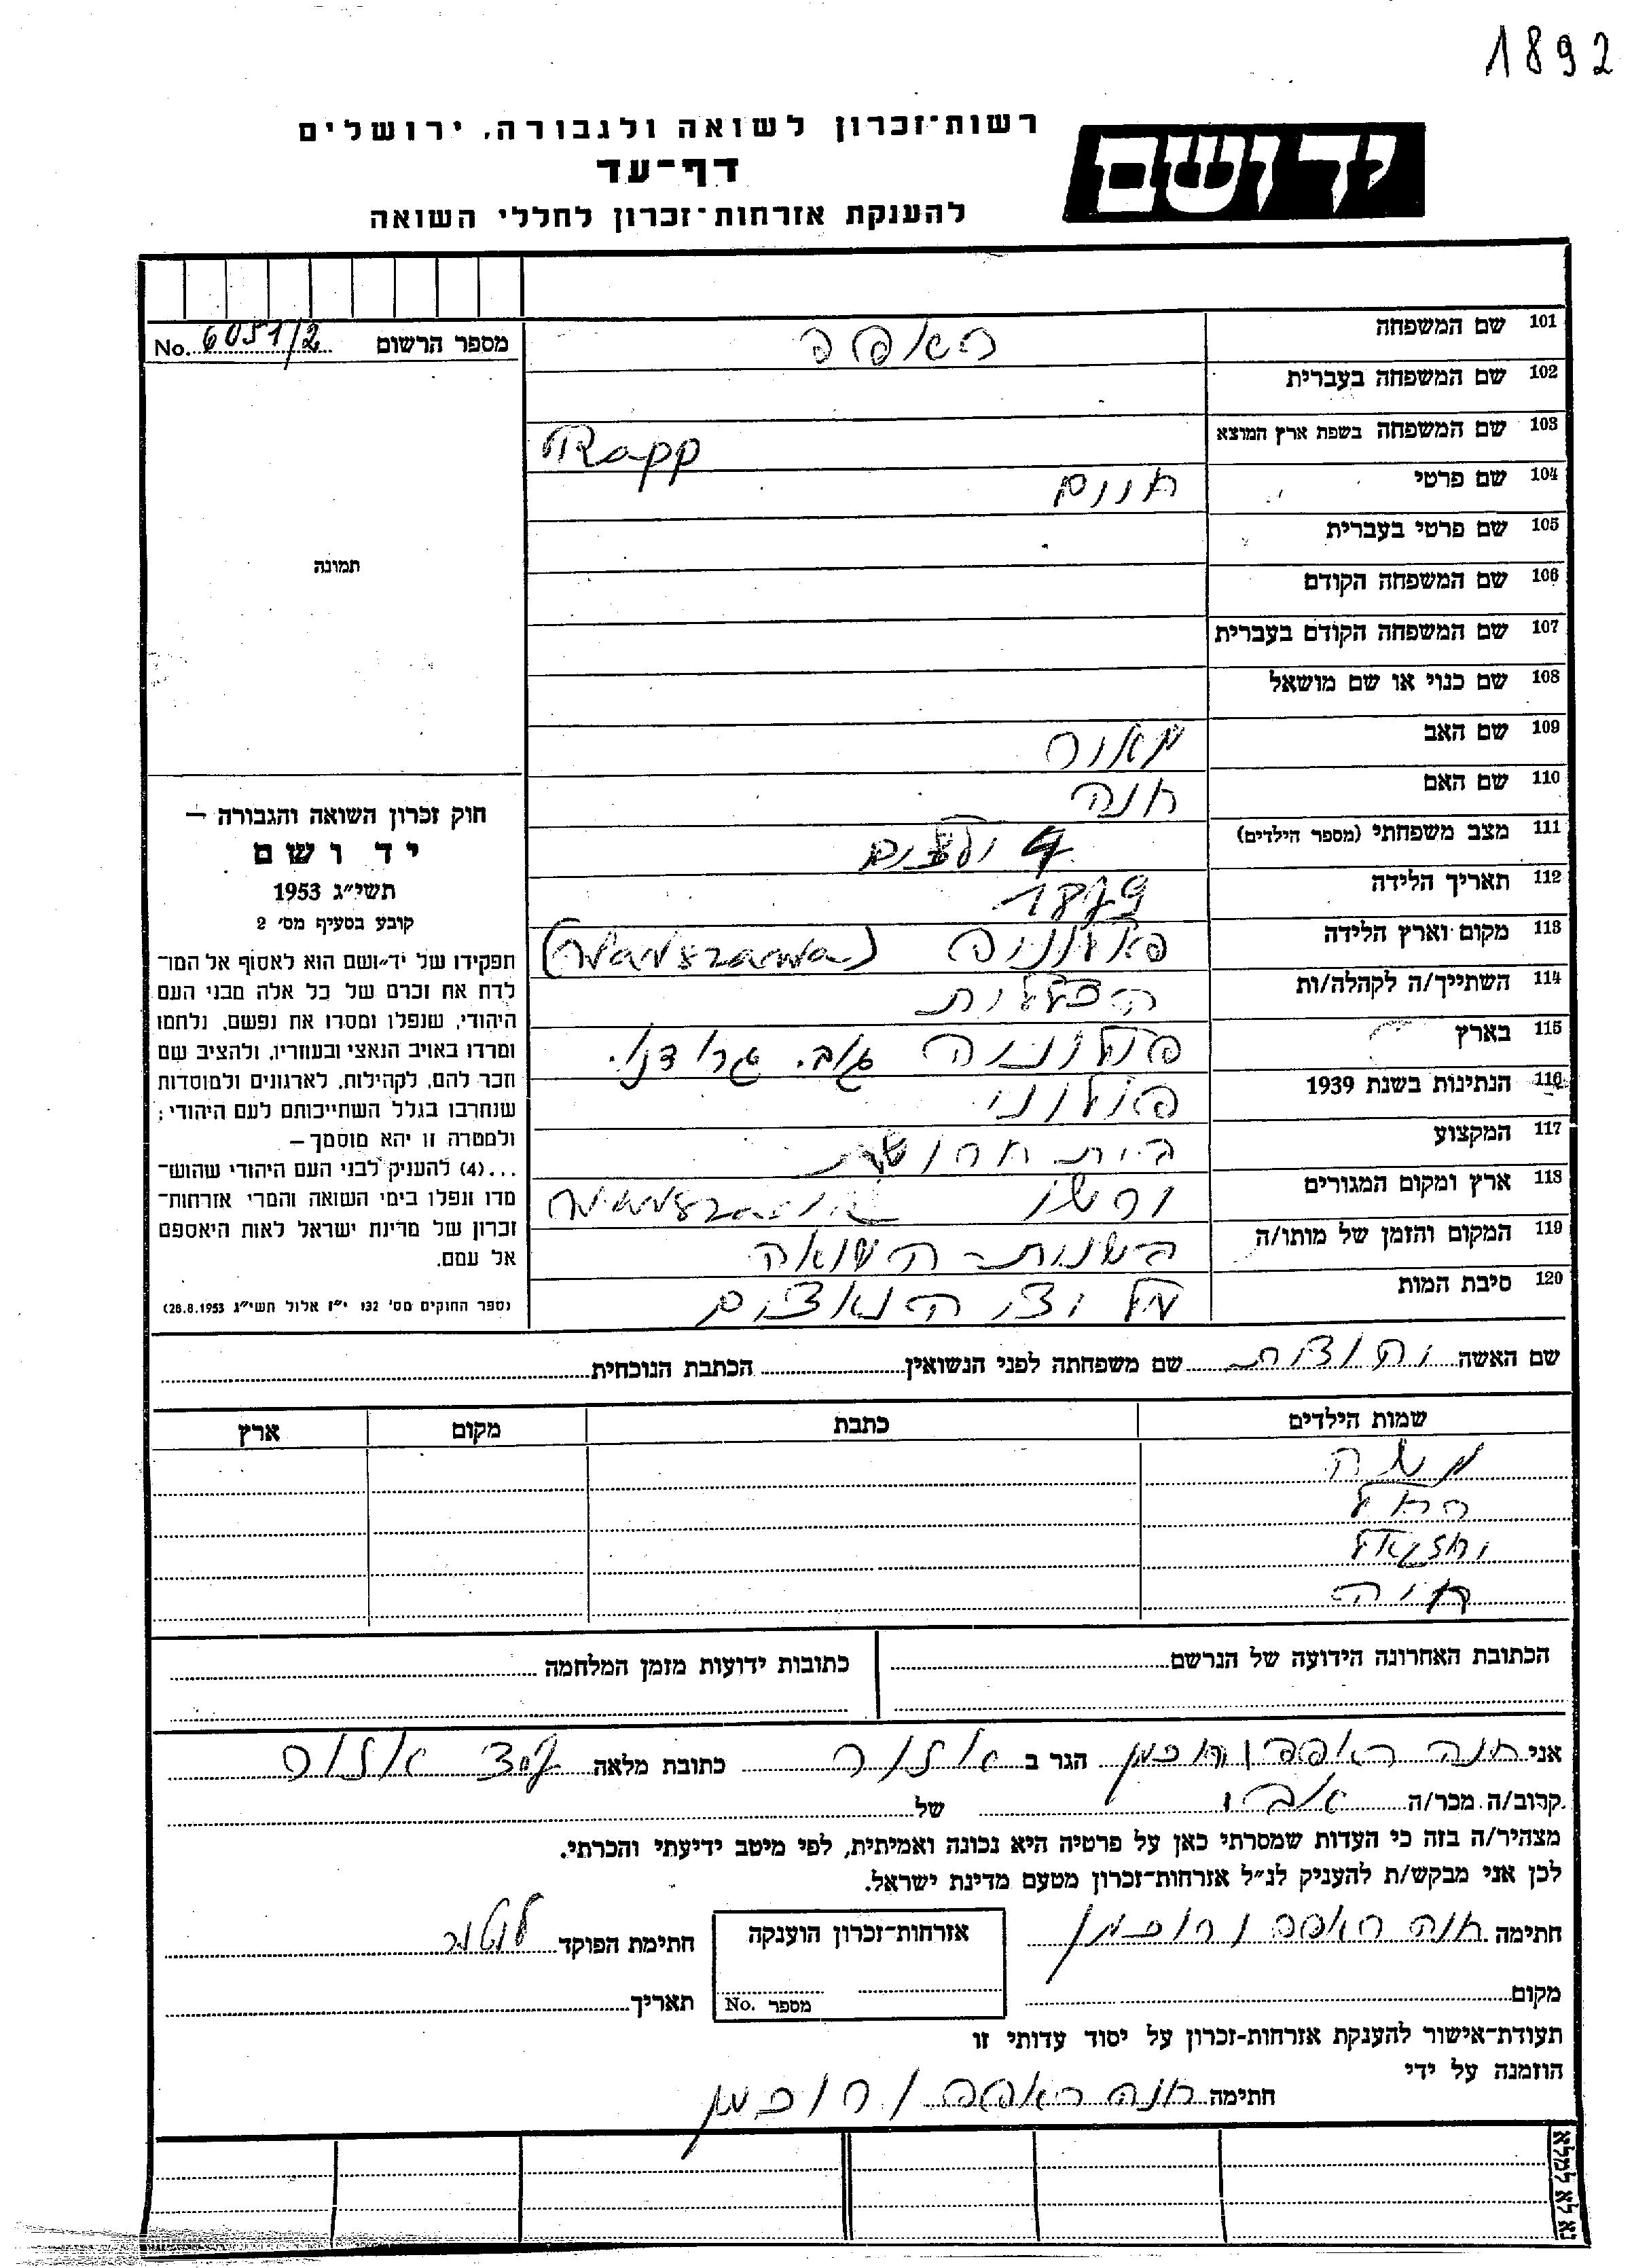 1892
ידושם
רשות־זכרון לשואה ולגבורה, ירושלים
דף־עד
להענקת אזרחות־זכרון לחללי השואה
מספר הרשום No. 6051/2
תמונה
חוק זכרון השואה והגבורה —
יד ושם
תשי״ג 1953
קובע בסעיף מס׳ 2
תפקידו של יד־ושם הוא לאסוף אל המו־
לדת את זכרם של כל אלה מבני העם
היהודי, שנפלו ומסרו את נפשם, נלחמו
ומרדו באויב הנאצי ובעוזריו, ולהציב שם
וזכר להם, לקהילות, לארגונים ולמוסדות
שנחרבו בגלל השתייכותם לעם היהודי;
ולמטרה זו יהא מוסמך —
...(4) להעניק לבני העם היהודי שהוש־
מדו ונפלו בימי השואה והמרי אזרחות־
זכרון של מדינת ישראל לאות היאספם
אל עמם.
(ספר החוקים מס׳ 132 י״ז אלול תשי״ג 28.8.1953)
101 שם המשפחה ראפפ
102 שם המשפחה בעברית
103 שם המשפחה בשפת ארץ המוצא Rapp
104 שם פרטי חיים
105 שם פרטי בעברית
106 שם המשפחה הקודם
107 שם המשפחה הקודם בעברית
108 שם כנוי או שם מושאל
109 שם האב מאיר
110 שם האם חנה
111 מצב משפחתי (מספר הילדים) 4 ילדים
112 תאריך הלידה 1879
113 מקום וארץ הלידה פאלוניה (Warszawa)
114 השתייך/ה לקהלה/ות
115 בארץ פולוניה
116 הנתינות בשנת 1939 פולוני
117 המקצוע בית חרושת
118 ארץ ומקום המגורים ורשו Warszawa
119 המקום והזמן של מותו/ה בשנות־השואה
120 סיבת המות על ידי הנאצים
שם האשה יהודית שם משפחתה לפני הנשואין הכתבת הנוכחית
שמות הילדים כתבת מקום ארץ
משה
רחל
יחזקאל
חיה
הכתובת האחרונה הידועה של הנרשם כתובות ידועות מזמן המלחמה
אני חנה ראפפ הגר ב אילניה כתובת מלאה
קרוב/ה מכר/ה אבי של
מצהיר/ה בזה כי העדות שמסרתי כאן על פרטיה היא נכונה ואמיתית, לפי מיטב ידיעתי והכרתי.
לכן אני מבקש/ת להעניק לנ״ל אזרחות־זכרון מטעם מדינת ישראל.
חתימה חנה ראפפ
אזרחות־זכרון הוענקה
מספר No.
חתימת הפוקד
מקום
תאריך
תעודת־אישור להענקת אזרחות־זכרון על יסוד עדותי זו
הוזמנה על ידי
חתימה חנה ראפפ
נא לא למלא